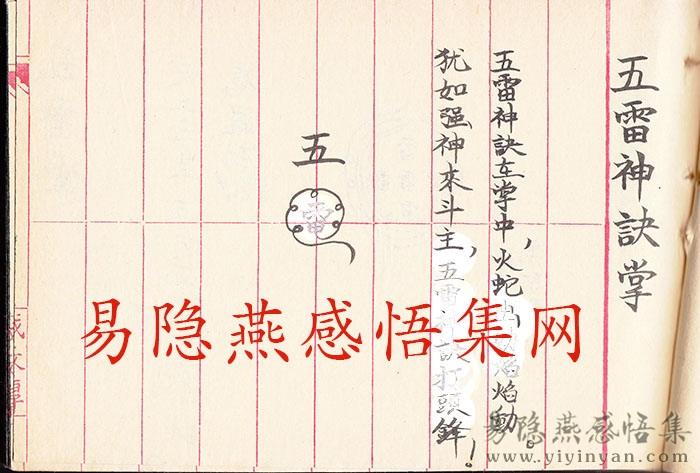 五雷神訣掌
五雷神訣在掌中，火蛇焰動。
犹如强神來斗主，五雷神訣打頭鋒！
五
雷
易隐燕感悟集网
易隐燕感悟集
www.yiyinyan.com